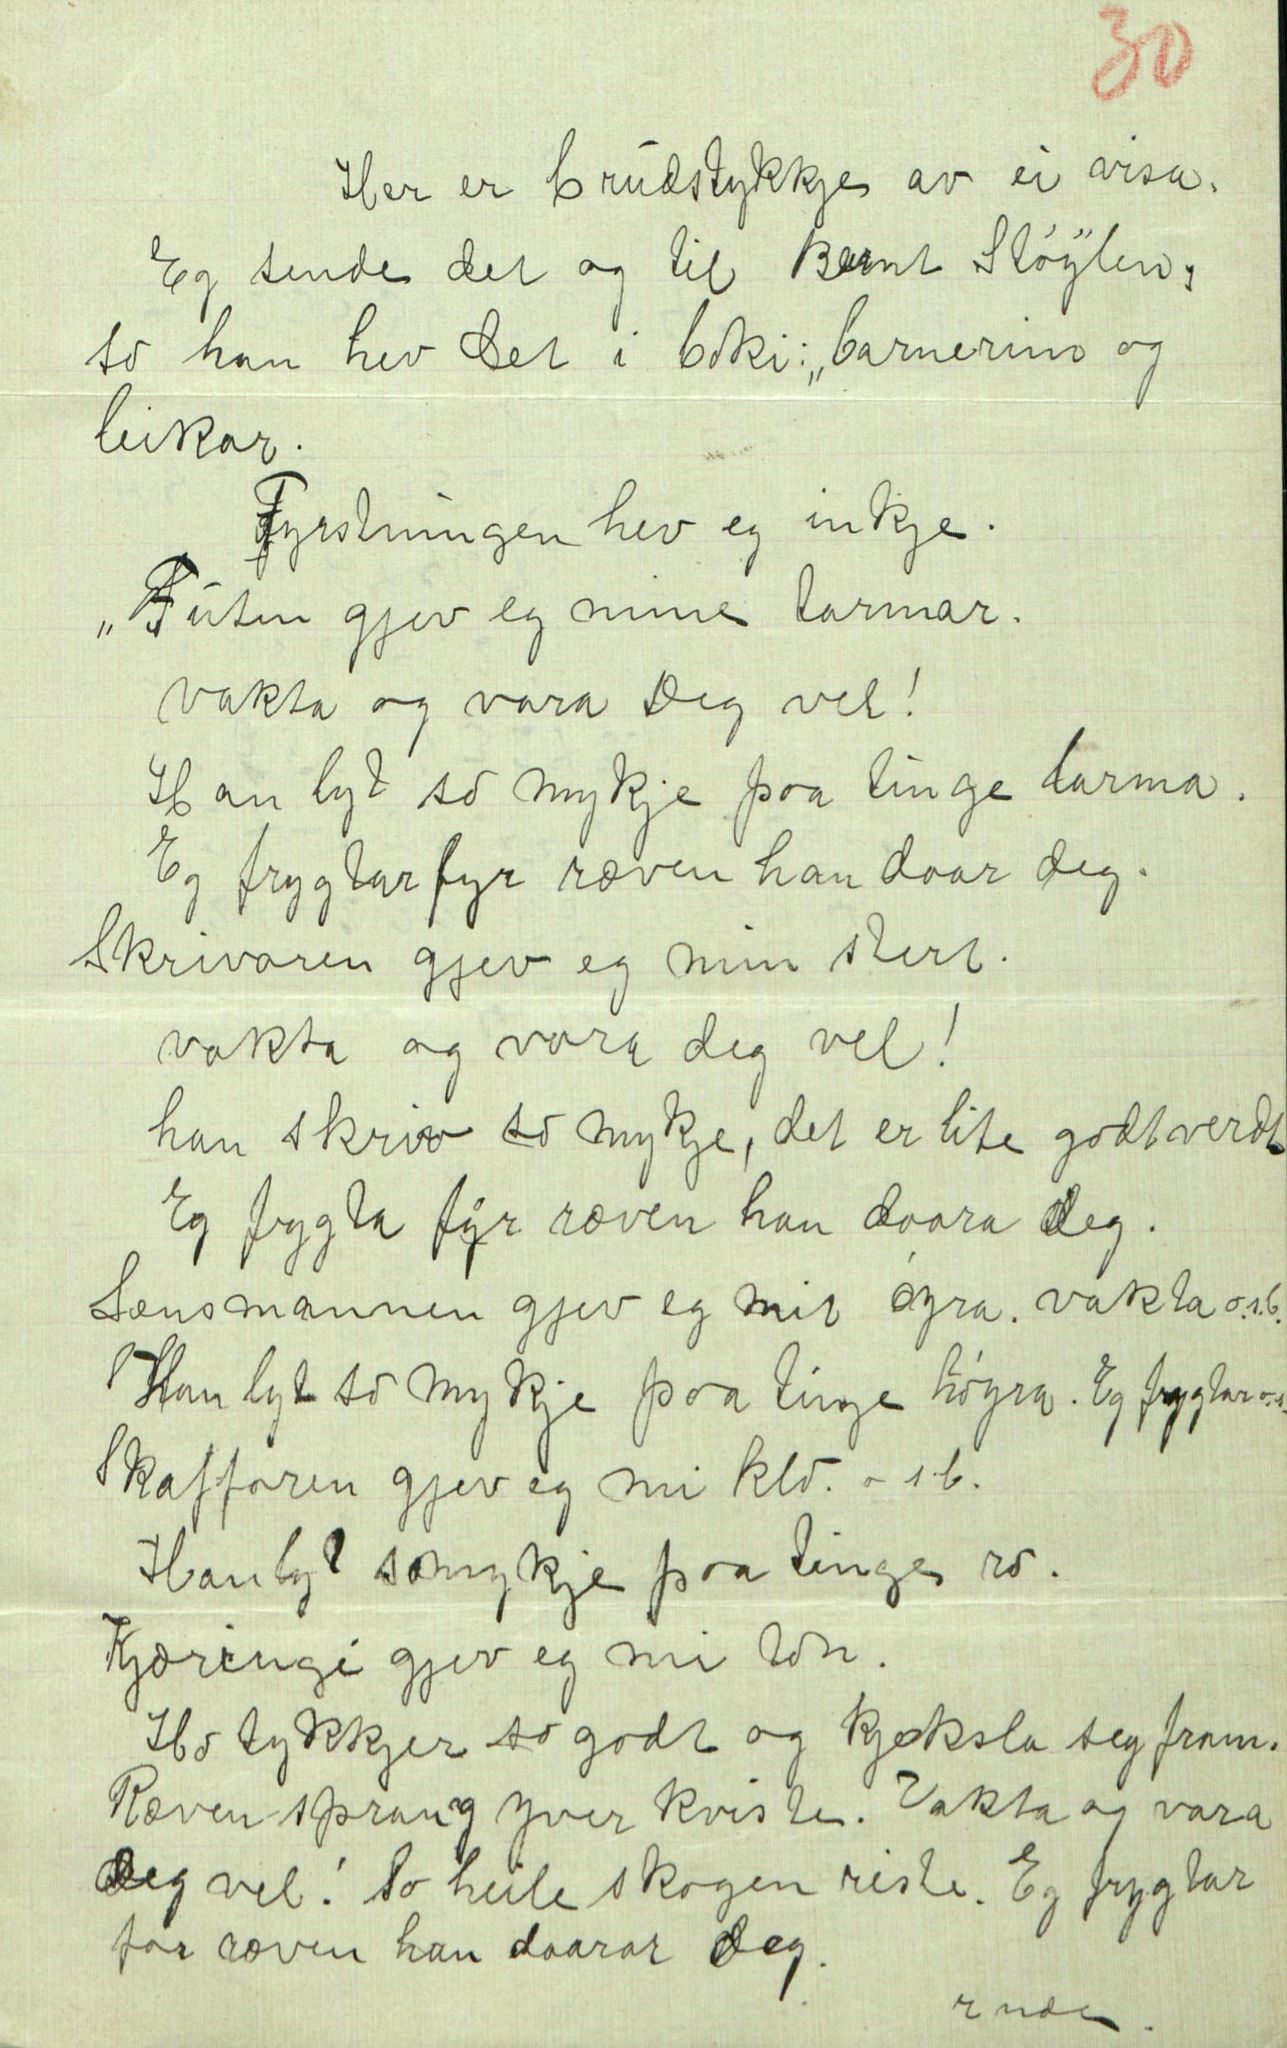 30
Her er brudstykkje av ei visa.
Eg sende det og til Bernt Støylen,
so han hev det i boki: „barnerim og
leikar.
Fyrstningen hev eg inkje.
„Futen gjev eg mine tarmar.
vakta og vara deg vel!
Han lyt so mykje paa tinge larma.
Eg frygtar fyr ræven han daar deg.
Skrivaren gjev eg min stert.
vakta og vara deg vel!
han skriv so mykje, det er lite godt verdt
Eg frygta fyr ræven han daara deg.
Lensmannen gjev eg mit øyra. vakta o.s.b.
Han lyt so mykje paa tinge høyra. Eg frygtar o.s.
Skaffaren gjev eg mi klo. o s.b.
Han lyt so mykje paa tinge ro.
Kjæringi gjev eg mi ton.
Ho tykkjer so godt og kjeksla seg fram.
Ræven sprang yver kviste. Vakta og vara
deg vel! So heile skogen riste. Eg frygtar
for ræven han daarar deg.